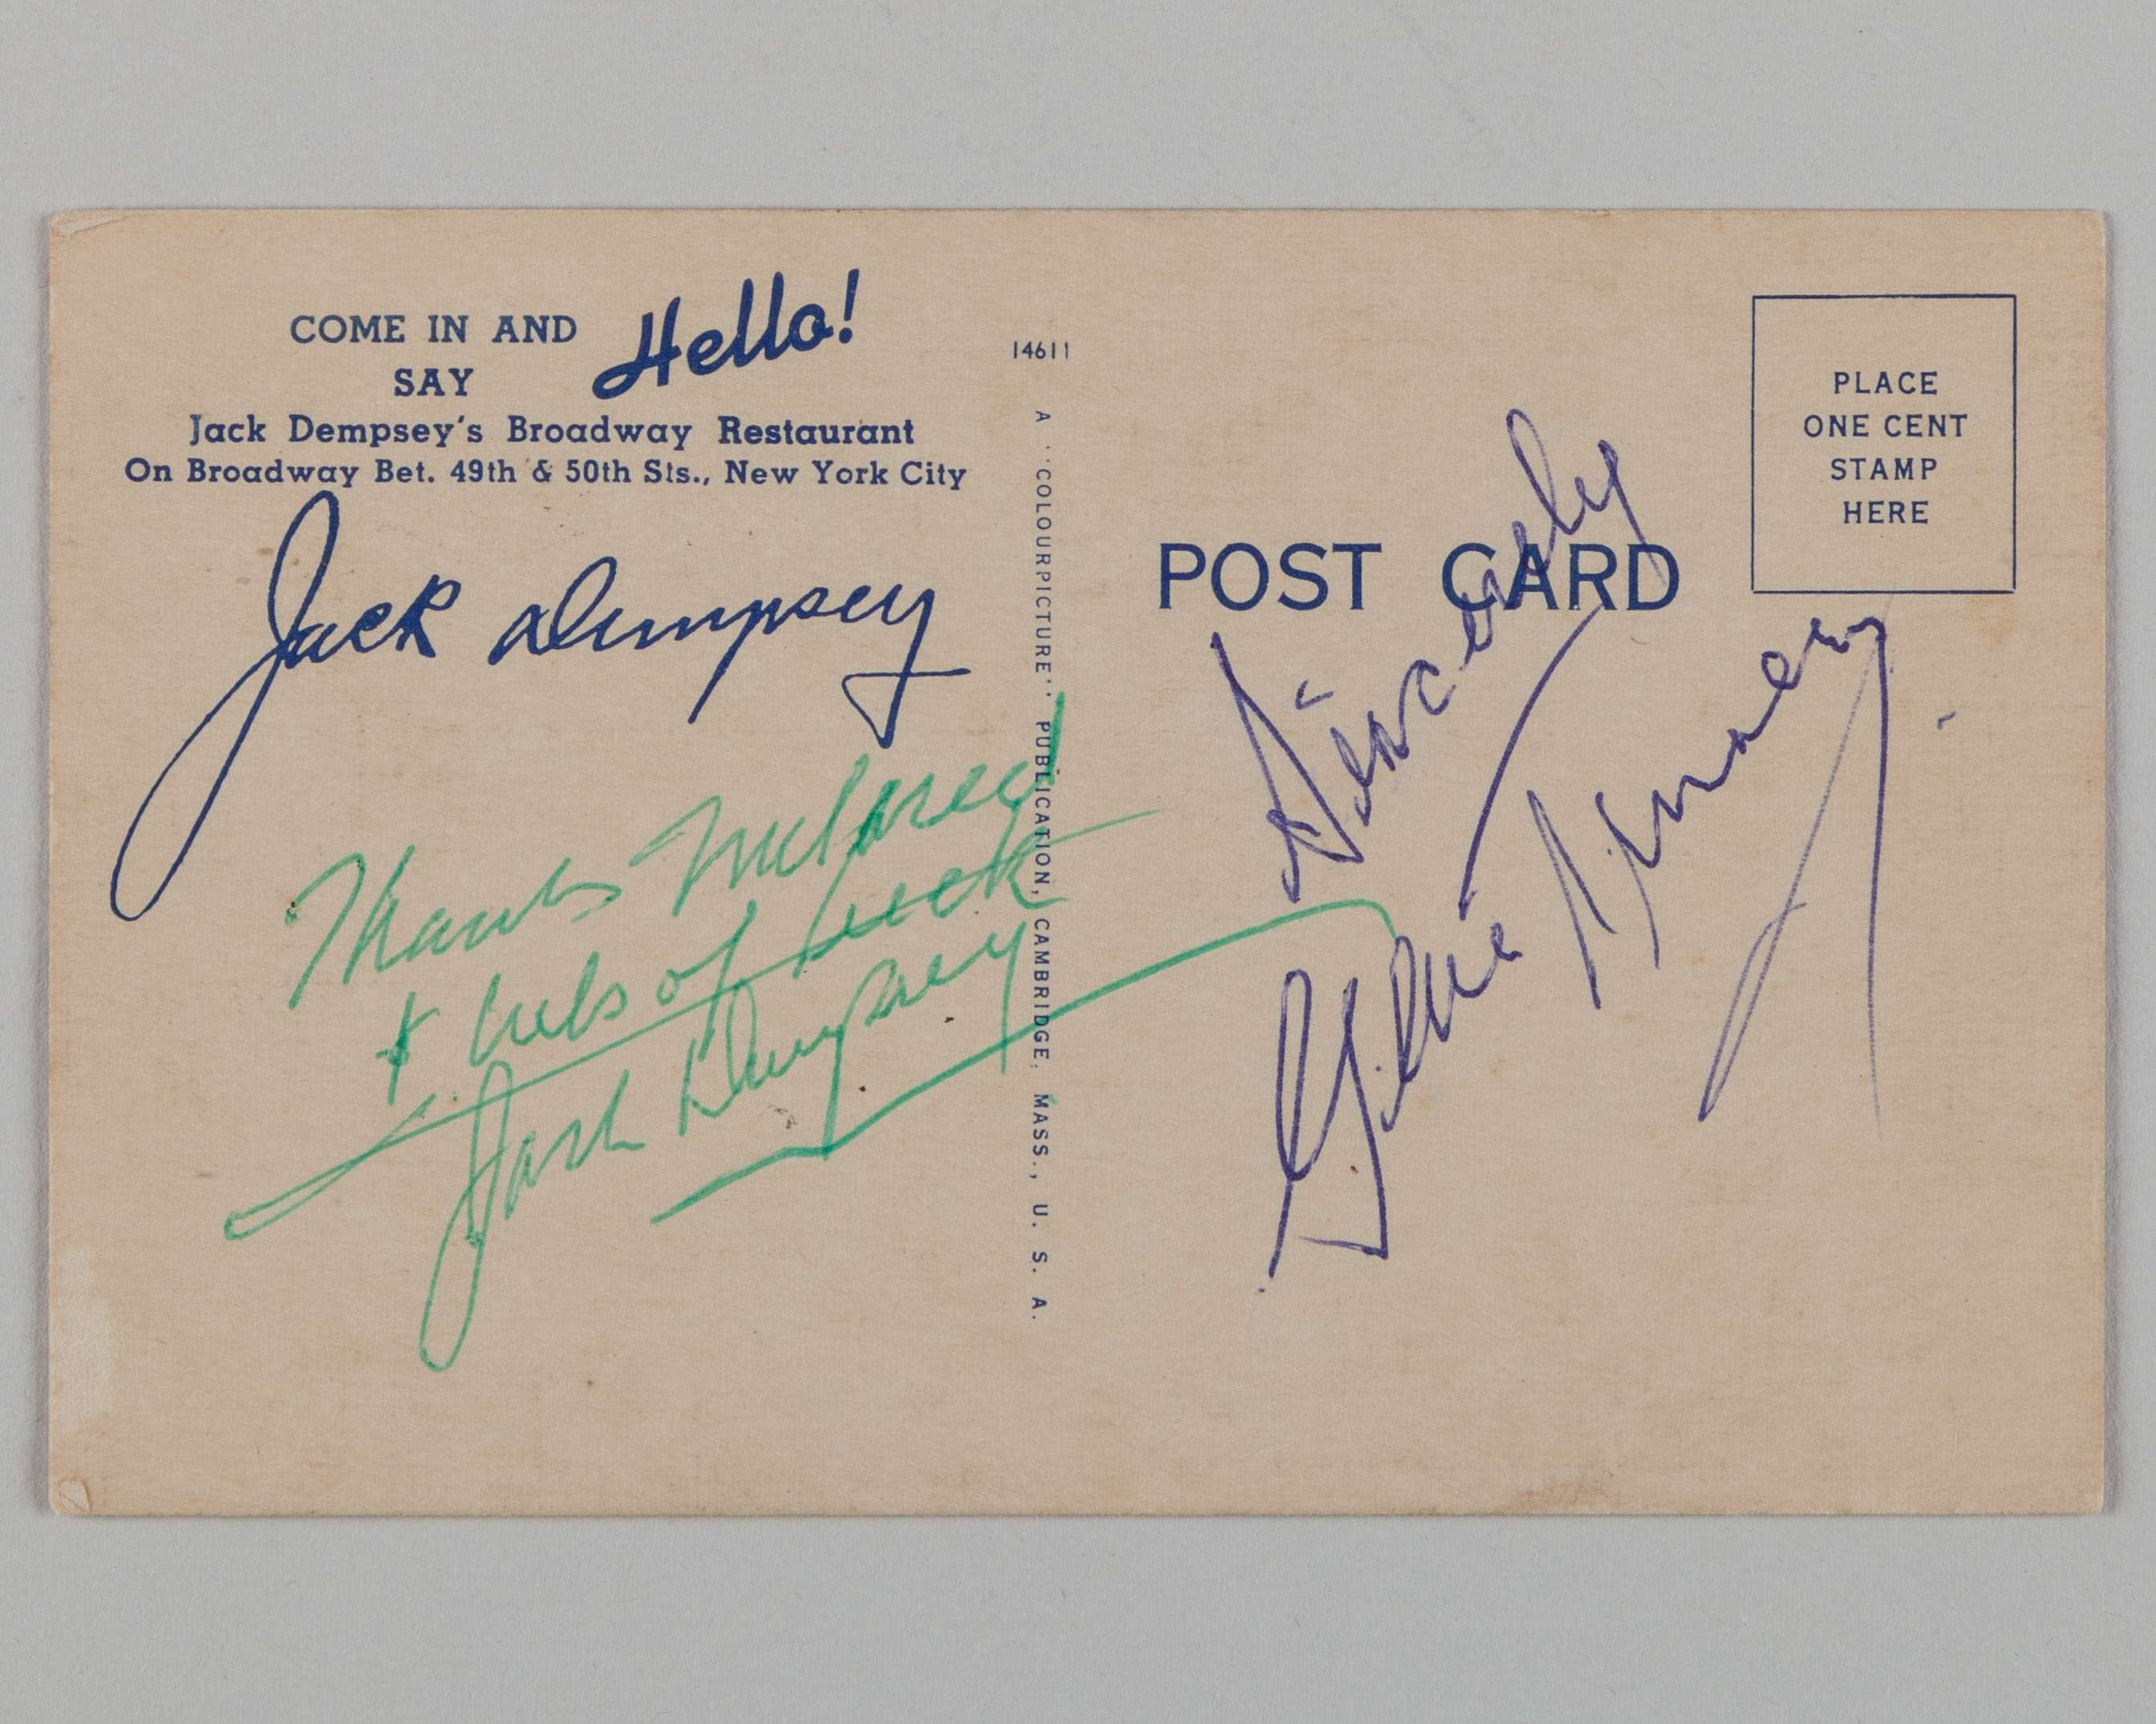 COME IN AND
SAY Hello!
Jack Dempsey's Broadway Restaurant
On Broadway Bet. 49th & 50th Sts., New York City
Jack Dempsey
Thanks Mildred
+ lots of luck
Jack Dempsey
14611
A "COLOURPICTURE" PUBLICATION, CAMBRIDGE, MASS., U. S. A.
POST CARD
PLACE
ONE CENT
STAMP
HERE
Sincerely
Gene Tunney